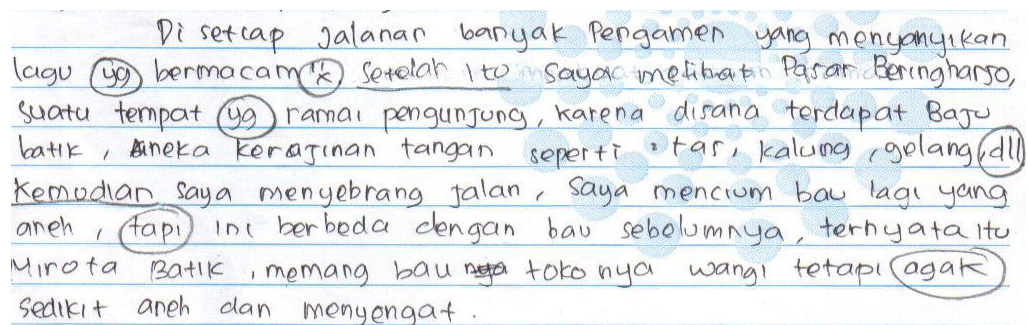 Di setiap jalanan banyak Pengamen yang menyanyikan
lagu yg bermacam"k setelah itu saya melihat Pasar Beringharjo,
suatu tempat yg ramai pengunjung, karena disana terdapat Baju
batik, Aneka kerajinan tangan seperti : tas, kalung, gelang, dll
Kemudian saya menyebrang jalan, saya mencium bau lagi yang
aneh, tapi ini berbeda dengan bau sebelumnya, ternyata itu
Mirota Batik, memang bau toko nya wangi tetapi agak
sedikit aneh dan menyengat.